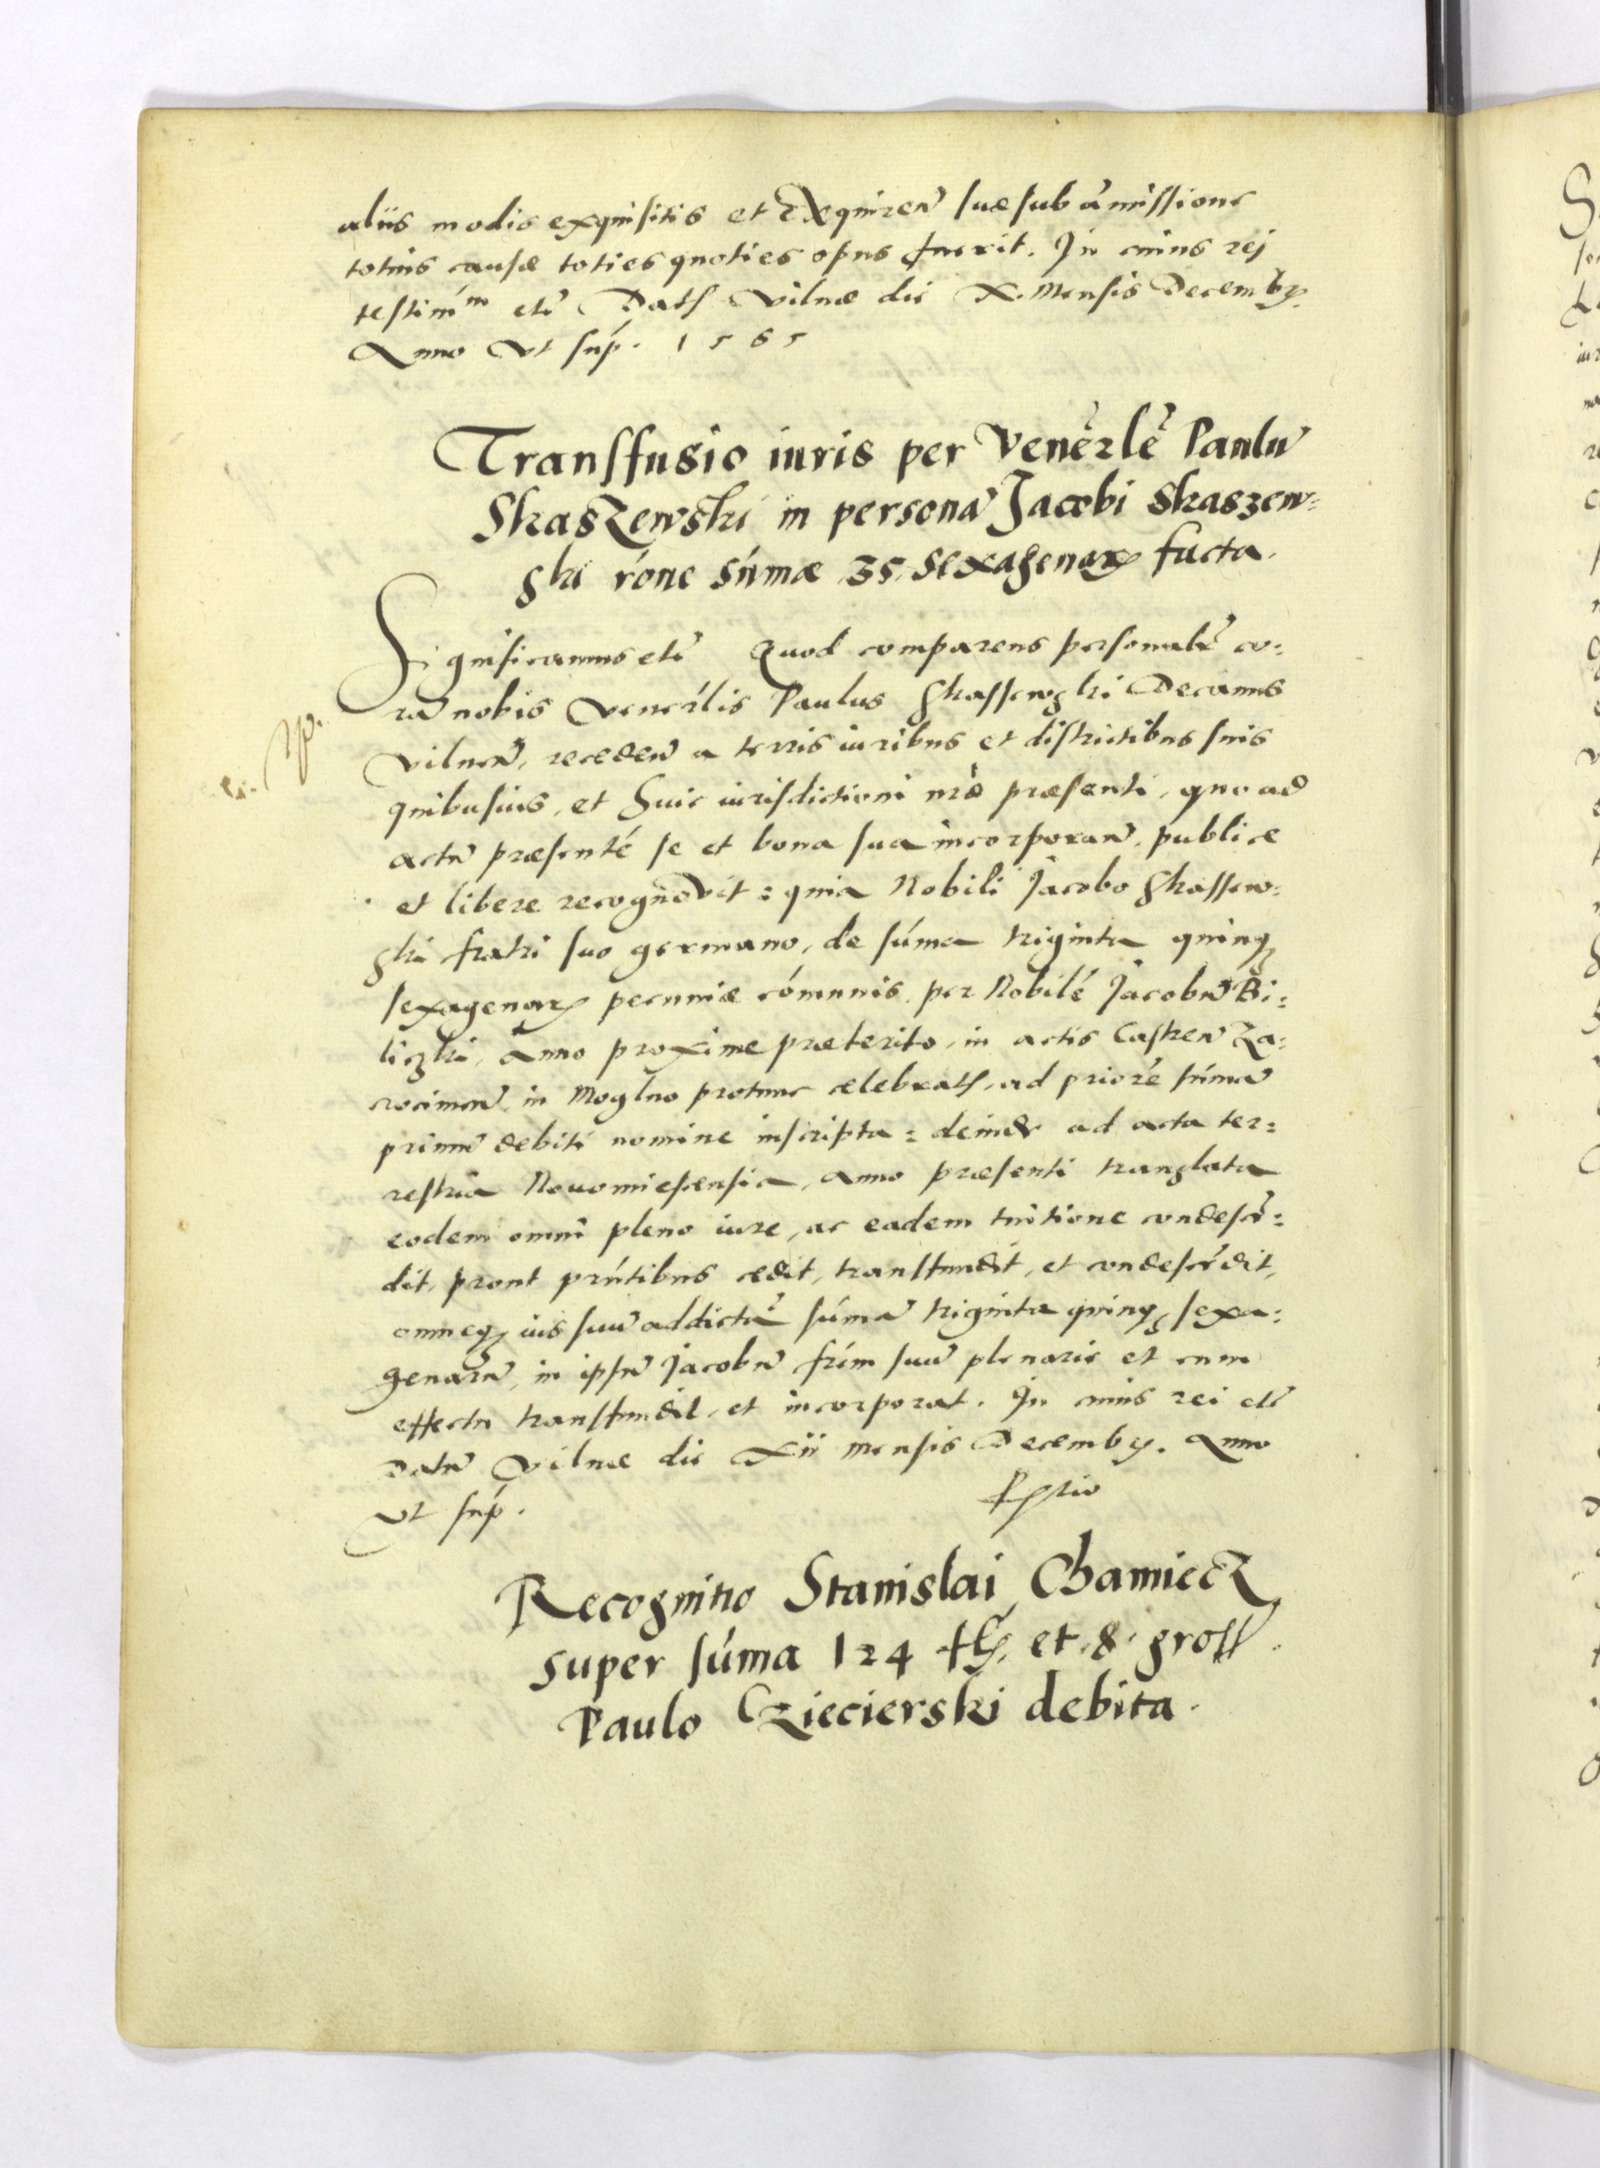 aliis modis exquisitis et Exquiren̄ suæ sub āmissione
totius causæ toties quoties opus fuerit. In cuius rej
testim̄ᵐ etc̄ Dat̄ Vilnæ die X. Mensis Decemb̄.
Anno Vt sup̄. 1565
Transsfusio iuris per Venērlē Paulū
SkasZewski in personā Jacobi Skaszew=
ski rōne sūmæ 35 Sexagenaꝝ facta.
Significamus etc̄ Quod comparens personalr̄ co=
rā nobis Venerlis Paulus Skassewski Decanus
Vilneñ, recedeñ a terris iuribus et districtibus suis
quibusuis, et huic iurisdictioni nrē præsenti, quo ad
actū præsentē se et bona sua incorporañ, publice
et libere recognovit: quia Nobili Jacobo Skassew=
ski fratri suo germano, de sūma triginta quinqꝫ
sexagenaꝝ pecuniæ cōmunis, per Nobilē Jacobū Bi=
liczki, anno proxime præterito, in actis Castreñ Za=
crocimeñ in Moglno protunc celebrat̄, ad priorē sūmā
primū debiti nomine inscripta: deinde ad acta ter=
restria Nouomiescensia, anno præsenti translata
eodem omni pleno iure, ac eadem intitione condescē=
dit, prout prn̄tibus cedit, transfundit, et condescēdit,
omneqꝫ ius suū addictā sūmā triginta quinqꝫ sexa=
genarū, in ipsū Jacobū frēm suū plenarie et cum
effectu transfundit, et incorporat. In cuius rei etc̄
Datū Vilnæ die Xii mensis Decemb̄. Anno
Vt sup̄.
Recognitio Stanislai ChamiecZ
super sūma 124 et 8 gross.
Paulo CZiecierski debita.